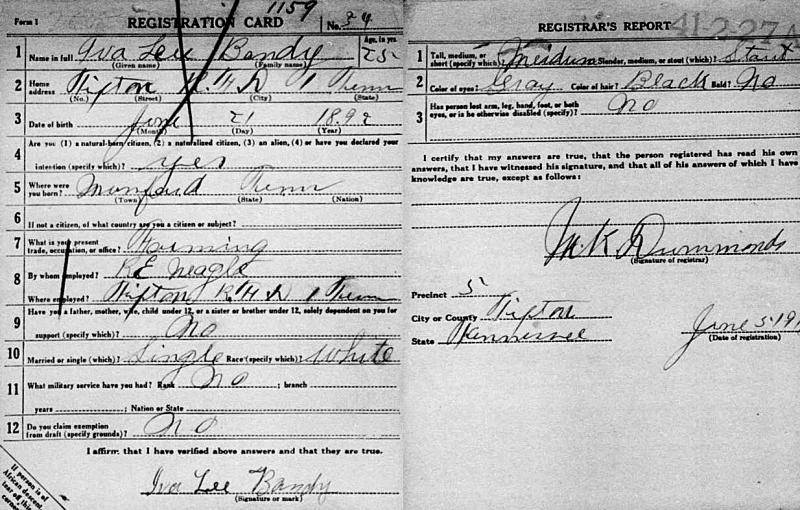 1159
Form 1 REGISTRATION CARD No. 34
1 Name in full Iva Lee Bandy Age, in yrs. 25
(Given name) (Family name)
2 Home address Tipton R.F.D 1 Tenn
(No.) (Street) (City) (State)
3 Date of birth June 21 1892
(Month) (Day) (Year)
4 Are you (1) a natural-born citizen, (2) a naturalized citizen, (3) an alien, (4) or have you declared your
intention (specify which)? yes
5 Where were you born? Munford Tenn
(Town) (State) (Nation)
6 If not a citizen, of what country are you a citizen or subject?
7 What is your present trade, occupation, or office? Farming
8 By whom employed? R E Neagle
Where employed? Tipton R.F.D 1 Tenn
9 Have you a father, mother, wife, child under 12, or a sister or brother under 12, solely dependent on you for
support (specify which)? No
10 Married or single (which)? Single Race (specify which)? White
11 What military service have you had? Rank No ; branch
years ; Nation or State
12 Do you claim exemption from draft (specify grounds)? No
I affirm that I have verified above answers and that they are true.
Iva Lee Bandy
(Signature or mark)
If person is of
African descent,
tear off this
corner
REGISTRAR'S REPORT
41-2-27 A
1 Tall, medium, or short (specify which)? Meidum Slender, medium, or stout (which)? Stout
2 Color of eyes? Gray Color of hair? Black Bald? No
3 Has person lost arm, leg, hand, foot, or both
eyes, or is he otherwise disabled (specify)? No
I certify that my answers are true, that the person registered has read his own
answers, that I have witnessed his signature, and that all of his answers of which I have
knowledge are true, except as follows:
M K Dummonds
(Signature of registrar)
Precinct 5
City or County Tipton
State Tennessee June 5 191
(Date of registration)